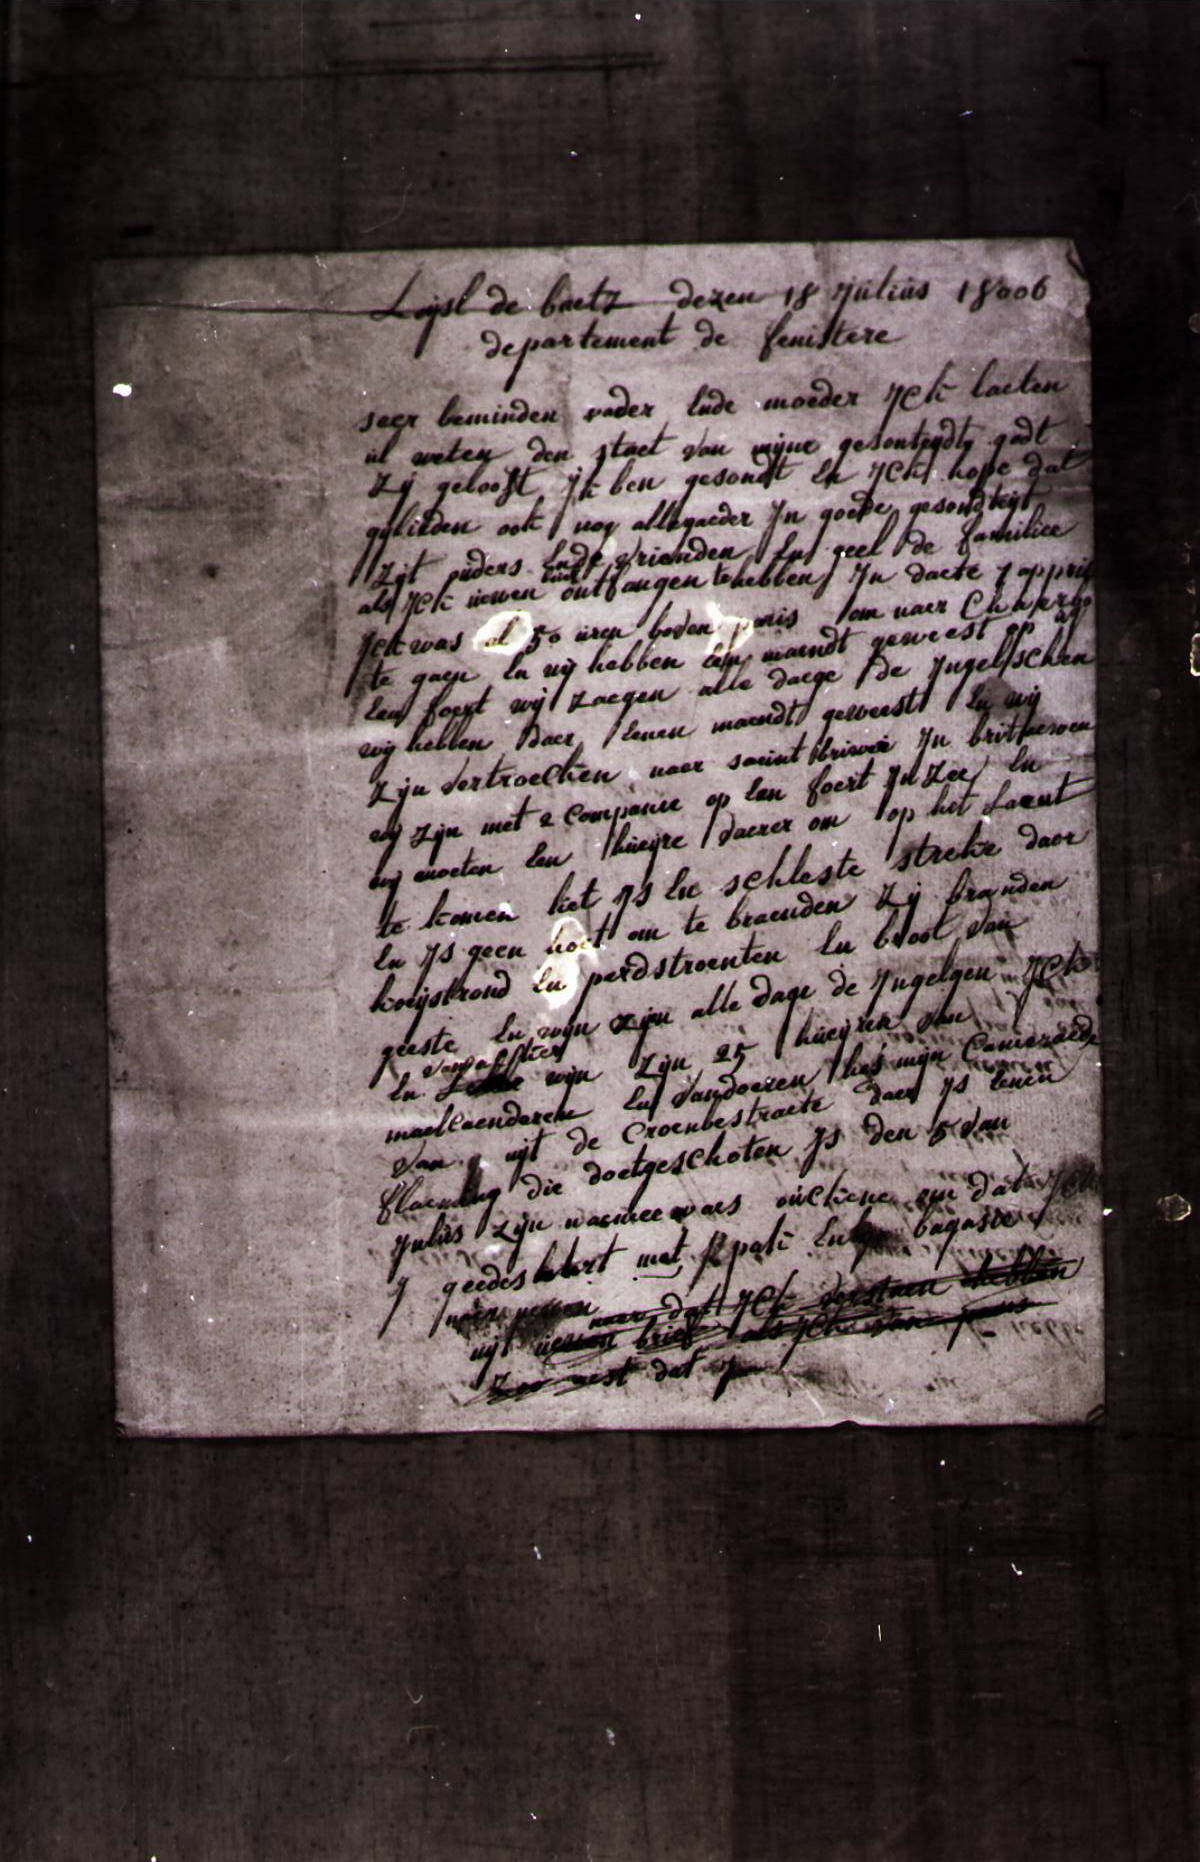 Lijsl de baetz dezen 18 Julius 18006
departement de fenistere
seer beminden vader ende moeder Jck laeten
ul weten den staet van mijne gesontejdt godt
Zij gelooft Jk ben gesondt en Jck hope dat
gijlieden ook nog allegaeder Jn goede gesondhijt
Zijt ouders ende vrienden en geel de familiee
als Jck uewen brief ontfangen te hebben Jn daete 7 appril
Jck was al 50 uren boven paris om naer
te gaen en wij hebben een maendt geweest op
een foert wij zaegen alle daege de Jngelschen
wij hebben daer eenen maendt geweest en wij
Zijn vertroecken naer saeint briwei Jn
wij zijn met 2 companie op een foert Jn zee en
wij moeten een hueijre vaeren om op het Laent
te komen het Js en schleste streke daer
en Js geen hoet om te braenden Zij branden
koeijstrond en perdstroenten en broot van
geeste en wijn zijn alle dage de Jngelgen Jck
en wijn zijn 25 hueijren van
maelcaenderen en vandoeren hes mijn Cameraede
van uijt de Croenbestraete daer Js eenen
flaeming die doetgeschoten Js den 5 van
Julius zijn naemee waes om dat Jck
geedeshert met pak en bagasie
uijt uewen brief als Jck van parus
naer dat Jck verstaen hebben
Zoo dat J